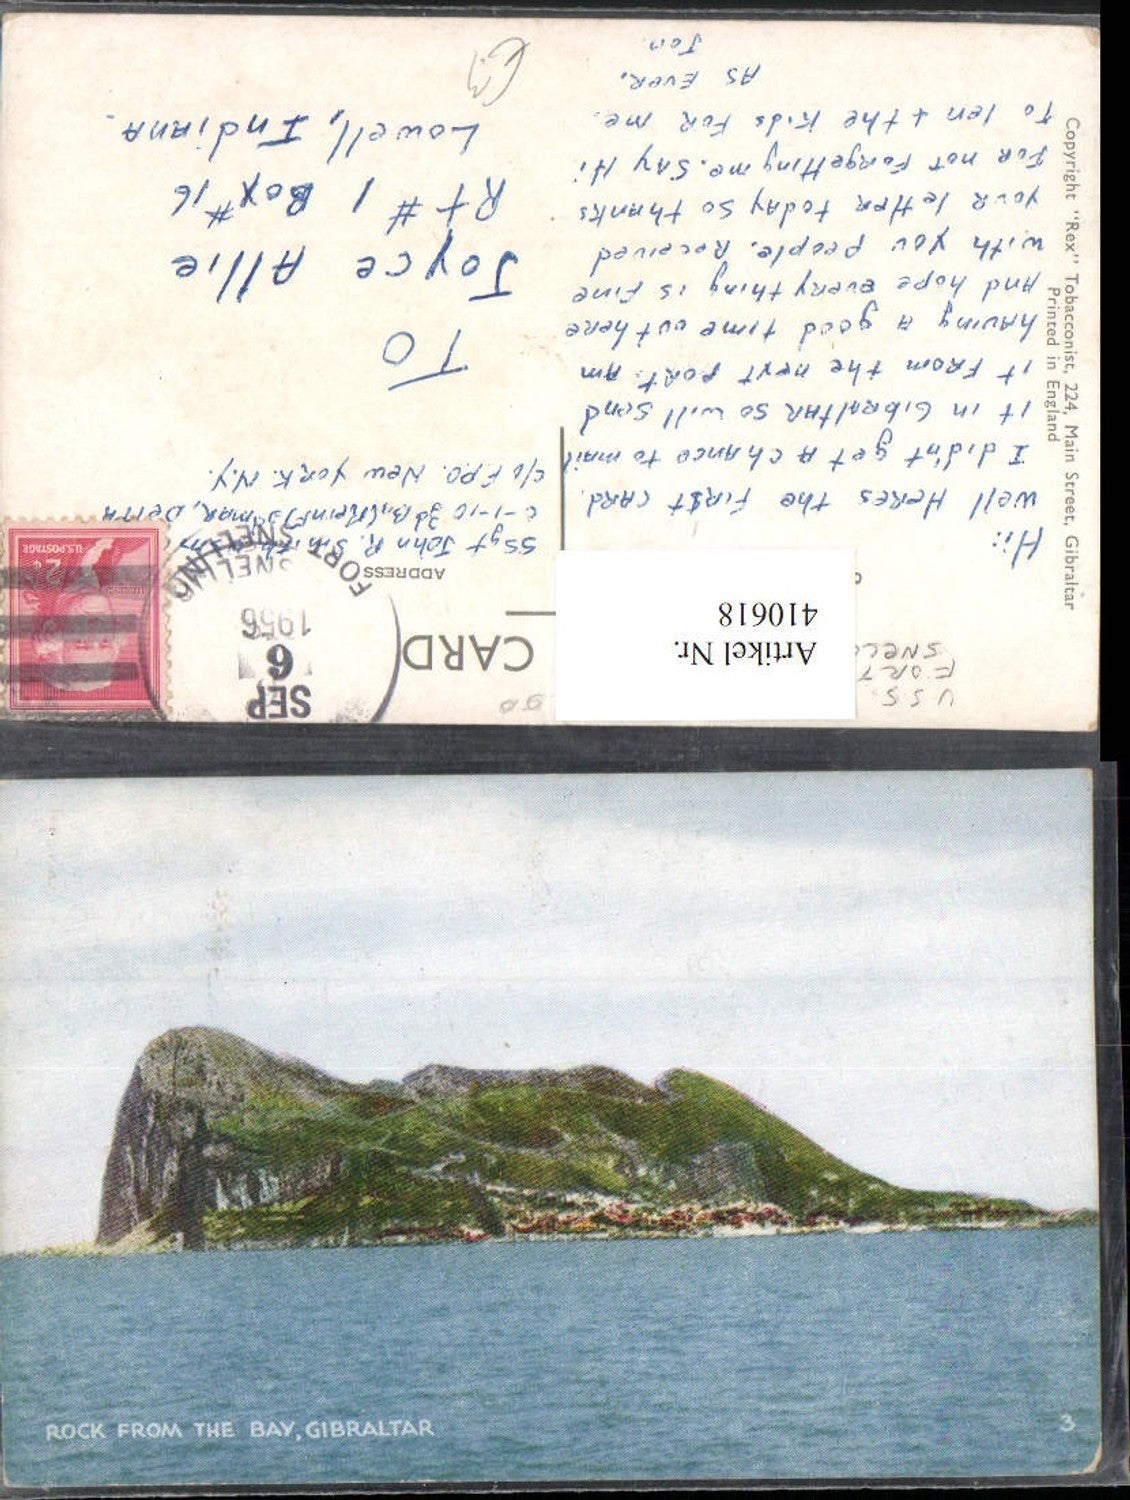 USS
FORT
SNELL
Artikel Nr.
410618
CARD
ADDRESS
SEP
6
1956
SNELLING
FORT SNELLING
U.S. POSTAGE
2¢
Hi:
Well Heres the FIRST CARD.
I didnt get A chance to mail
it in GibRALTAR so will send
it FROM the next PORT. Am
hAving A good time out here
And hope everything is Fine
with you people. Received
your letter today so thanks
FOR not Forgetting me. SAy Hi
To len & the Kids FOR me.
As Ever,
Jon.
SSgt John R. Smith
C-1-10 3d Bn (Reinf)
c/o F.P.O. New York. N.Y.
TO
Joyce Allie
Rt #1 Box #16
Lowell, IndiANA.
Copyright "Rex" Tobacconist, 224, Main Street, Gibraltar
Printed in England
ROCK FROM THE BAY, GIBRALTAR
3